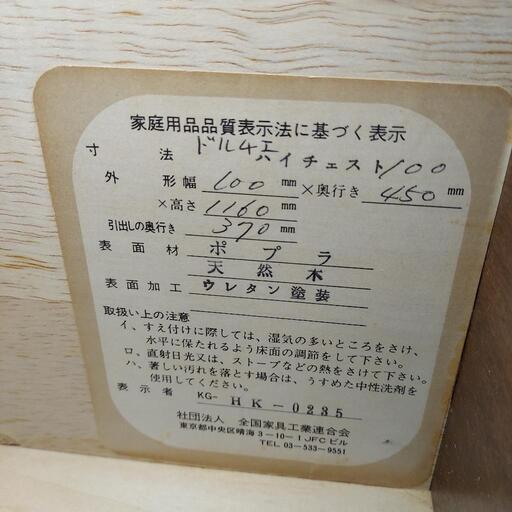 家庭用品品質表示法に基づく表示
ドル4エ
寸法 ハイチェスト100
外形幅 100mm×奥行き 450mm
×高さ 1160mm
引出しの奥行き 370mm
表面材 ポプラ
天然木
表面加工 ウレタン塗装
取扱い上の注意
イ、すえ付けに際しては、湿気の多いところをさけ、
水平に保たれるよう床面の調節をして下さい。
ロ、直射日光又は、ストーブなどの熱をさけて下さい。
ハ、著しい汚れを落とす場合は、うすめた中性洗剤を
使用してください。
表示者 KG-HK-0235
社団法人 全国家具工業連合会
東京都中央区晴海3-10-1JFCビル
TEL 03-533-9551